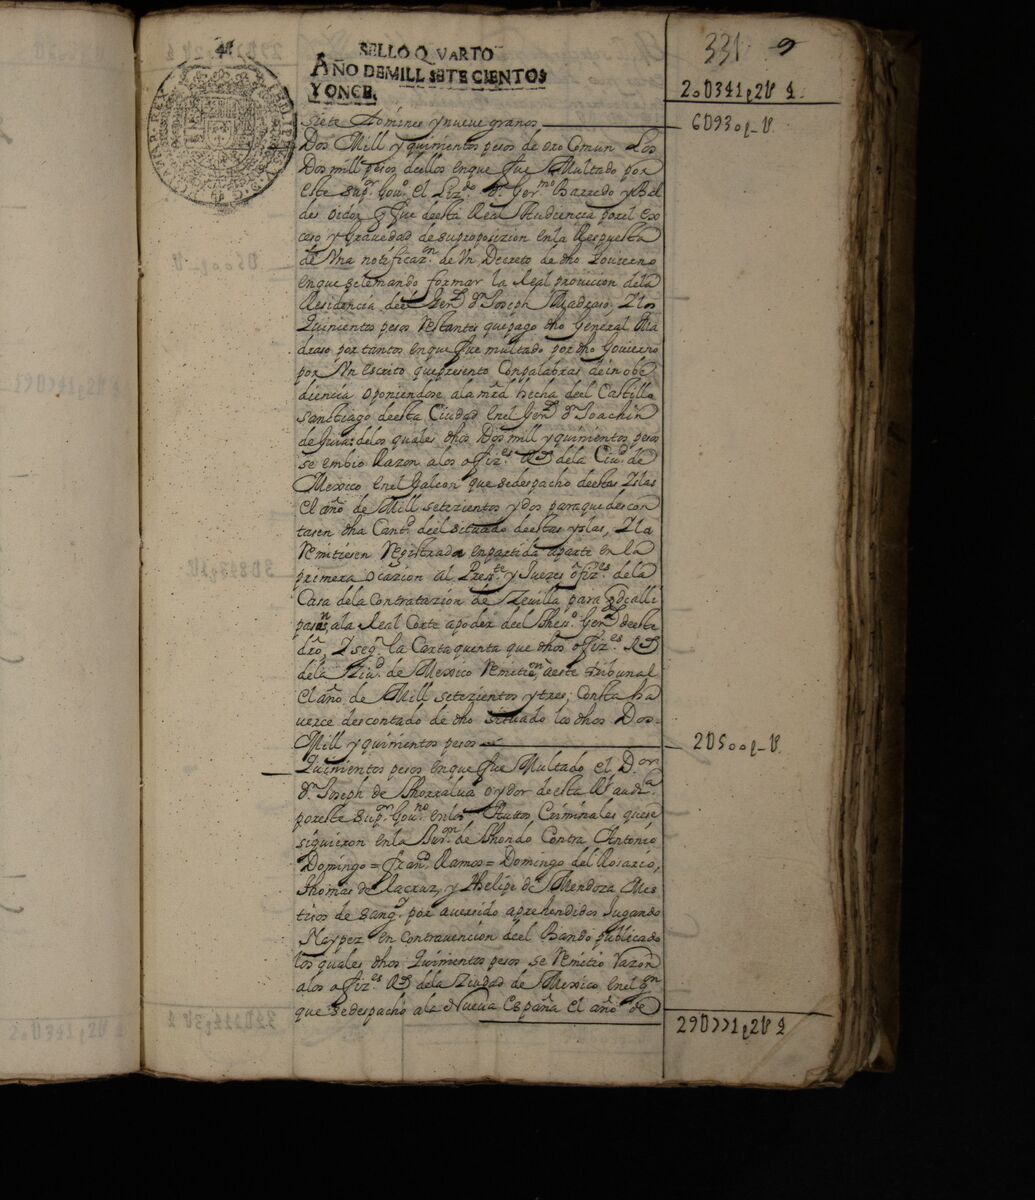 331 9
SELLO QVARTO
AÑO DE MILL SETECIENTOS
Y ONCE.
siete tómines y nueve granos
Dos Mill y quinientos pesos de oro Comun Los
Dos mill pesos dellos en que fue Multado por
este Supor. Gouo. el Lizdo. Dn. Germo. Barredo y Bal
des oidor q fue deesta Real Audiencia porel exz
ceso y Grauedad de su proposizion en la Respuesta
de Vna notificazn. de Vn Decreto de dho Gouierno
en que sele mando formar la Real prouicion dela
Residencia deel Genl. Dn. Joseph Madraso; Y los
Quinientos pesos Restantes que pago dho General Ma
draso por tantos en que fue multado por dho Gouierno
por Vn Escrito que presento Con palabras de in obe
diencia oponiendose ala mrd. hecha deel Castillo
Santtiago deesta Ciudad en el Genl. Dn. Joachin
de los quales dhos Dos mill y quinientos pesos
se embio Razon alos ofizes. Rs. dela Ciud. de
Mexico en el Galeon que se despacho destas Yslas
el año de Mill setezientos y dos para que descon
tasen dha Cantd. deel situado deestas yslas, Y la
Remitiesen Registrada en partida aparte en la
primera ocazion al Preste. y Juezes ofizes. dela
Casa dela Contratazion de Zeuilla para q de alli
pasen ala Real Corte a poder del thesro. Genl. deeste
dro, Y segn. la Carta quinta que dhos offizes. Rs.
dela Ziud. de Mexico Remitieron, a este tribunal
el año de Mill setezientos y tres; Consta ha
uerce descontado de dho situado los dhos Dos=
Mill y quinientos pesos
Quinientos pesos en que fue Multado el Dor.
Dn. Joseph de thorralua oydor de esta Rl. auda.
por este Supor. Gouno. en los Auttos Criminales que se
siguieron en la Jurn. de thondo Contra Antonio
Domingo = Frando. Ramos = Domingo del Rosario,
thomas de la cruz, y Phelipe de Mendoza Mes
tisos de sangy. por auersido aprehendidos Jugando
Naypez en contrauencion deel Bando publicado
los quales dhos Quinientos pesos se Remitio razon
alos ofizes. Rs. dela Ziudad de Mexico en el Gn.
que se despacho ala Nueua España el año de